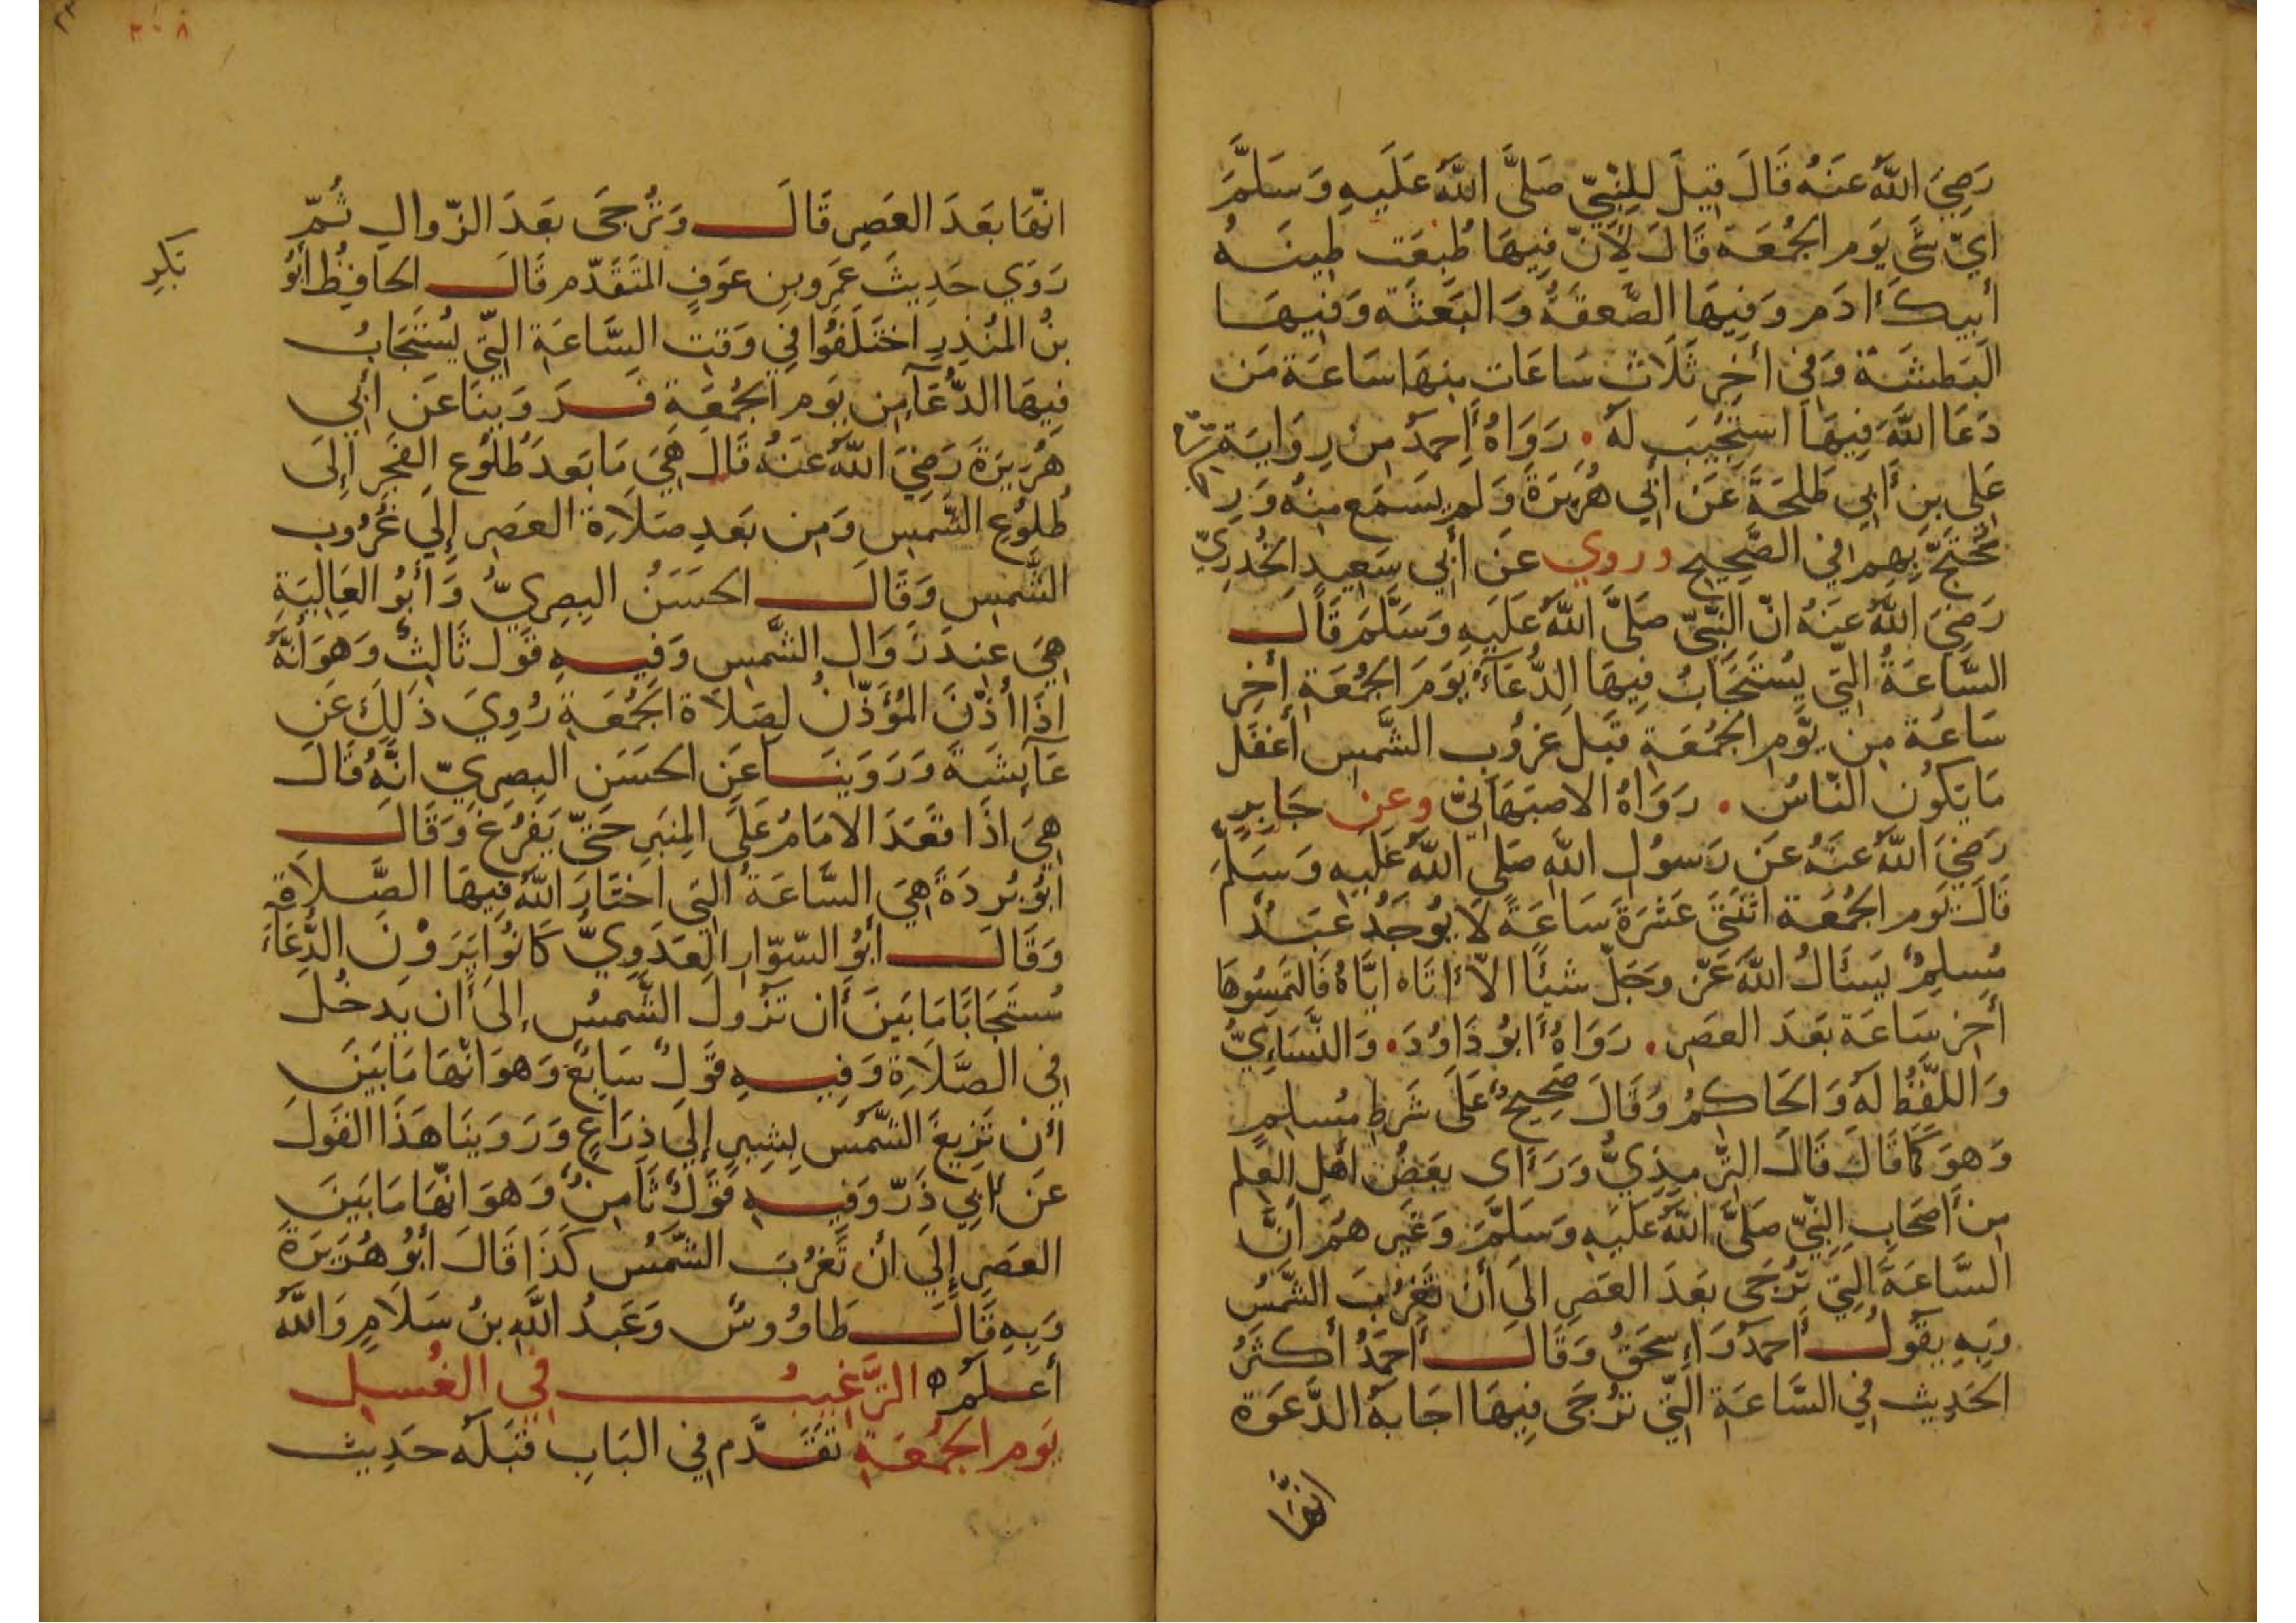 رَضِيَ اللَّهُ عَنهُ قَالَ قِيلَ لِلنَّبِيّ صَلَّى اللَّهُ عَلَيهِ وَسَلَّمَ
ايّ شَي يَوم الجُمُعَة قَالَ لِأَنّ فِيهَا طُبِعَت طِينَهُ
أبيكَ ادَم وَفِيهَا الصَّعقَةُ وَالبَعثَه وَفيهَا
البَطشَة وَفي أخِرِ ثَلَاث سَاعَات مِنهَا سَاعَة مَن
دَعَا اللَّهَ فِيهَا استُجِيبَ لَهُ . رَوَاهُ أحمدُ مِن رِوَايَة
عَلي بن أبي طَلحَةَ عَن أبي هُرَيرَةَ وَلَم يَسمَع مِنهُ وَرِ
مُحتَجّ بِهِم في الصَّحِيحِ وروي عَن أبي سَعِيدٍ الخُدرِيّ
رَضِيَ اللَّهُ عَنهُ انّ النَّبِيّ صَلَّى اللَّهُ عَلَيهِ وَسَلَّمَ قَالَ
السَّاعَةُ التِي يُستَجَابُ فِيهَا الدُّعَآءُ يَومَ الجُمُعَةِ أخِر
سَاعَة مِن يَوم الجُمُعَةِ قَبلَ غرُوبِ الشَّمسِ أغفَل
مَا يَكُون النّاسُ . رَوَاهُ الاصبَهَانِيّ وعن جَابِرٍ
رَضِيَ اللَّهُ عَنهُ عَن رَسولِ اللَّهِ صَلى اللَّهُ عَلَيهِ وَسَلَّمَ
قَالَ يَوم الجُمُعَة اثنَتَى عَشَرَةَ سَاعَةً لَا يُوجَدُ عَبدٌ
مُسلِمٌ يَسئَالُ اللَّهَ عَزّ وجَلّ شَيئًا الاّ اتَاه ايَّاهُ فَالتَمِسُوهَا
أخِر سَاعَة بَعدَ العَصر . رَوَاهُ ابُو دَاوُدَ . وَالنَّسَاءِيُّ
وَاللَّفظُ لَهُ وَالحَاكِمُ وَقَالَ صَحِيحٌ عَلَى شَرطِ مُسلمٍ
وَهوَ كَمَا قَالَ قَالَ التِّرمِذِيُّ وَرَأى بَعضُ اهل العِلم
مِن أصحَابِ النَّبِيّ صَلَّى اللَّهُ عَلَيهِ وَسَلَّمَ وَغَير هُم أنَّ
السَّاعَةَ التِي تُرجَى بَعدَ العَصرِ الى أن تَغرُبَ الشَّمسُ
وَبِهِ يَقُولُ أحمدُ وَاسحَقُ وَقَالَ أحمدُ أكثَرُ
الحَدِيث في السَّاعَة التِّي تُرجَى فِيهَا اجَابَةُ الدَّعوَة
انهَا
٢٠٨
انّهَا بَعدَ العَصرِ قَالَ وَتُرجَى بَعدَ الزّوالِ ثُمّ
رَوَي حَدِيثَ عَمرِو بن عَوفٍ المتَقَدّم قَالَ الحافِظُ أبُو
بَكرِ
بنُ المُنذِرِ اختَلَفُوا فِي وَقتِ السَّاعَةِ التِّي يُستَجَابُ
فِيهَا الدُّعَآءُ مِن يَومِ الجُمُعَةِ فَرَوَينَا عَن أبي
هُرَيرَةَ رَضِيَ اللَّهُ عَنهُ قَالَ هِيَ مَا بَعدَ طُلُوعِ الفَجرِ إلَى
طُلوُعِ الشَّمسِ وَمِن بَعدِ صَلَاةِ العَصرِ إلَي غُرُوب
الشَّمسِ وَقَالَ الحَسَنُ البَصرِيُّ وَأبُو العَالِيَةِ
هِيَ عِندَ زَوَالِ الشَّمسِ وَفِيهِ قَول ثَالِثٌ وَهوَ أنَّهُ
اذَا أذّنَ المُؤَذّنُ لِصَلَاة الجُمُعَةِ رُوِيَ ذَلِكَ عَن
عَآيِشَةَ وَرَوَينَا عَنِ الحَسَنِ البَصرِيّ انَّهُ قَالَ
هِيَ اذَا قَعَدَ الامَامُ عَلَى المِنبَرِ حَتّى يَفرُغَ وَقَالَ
ابُو بُردَةَ هِيَ السَّاعَةُ التِي اختَارَ اللَّهُ فِيهَا الصَّلَاةَ
وَقَالَ أبُو السّوّارِ العَدَوِيُّ كَانُوا يَرَوْنَ الدُّعَآءَ
مُستَجَابًا مَا بَينَ أن تَزُولَ الشَّمسُ إلَى أن يَدخُلَ
فِي الصَّلَاةِ وَفِيهِ قَولٌ سَابِعٌ وَهوَ انّهَا مَا بَينَ
أن تَزِيغَ الشَّمسُ بِشِبرٍ إلَي ذِرَاعٍ وَرَوَينَا هَذَا القَولَ
عَن أبي ذَرّ وَفِيهِ قَولٌ ثَامِنٌ وَهوَ انّهَا مَا بَينَ
العَصرِ إلَي أن تَغرُبَ الشَّمسُ كَذَا قَالَ أبُو هُرَيرَةَ
وَبِهِ قَالَ طَاوُوسٌ وَعَبدُ اللَّهِ بنُ سَلَامٍ وَاللَّهُ
أعلَمُ ه الترَّغِيبُ في الغُسلِ
يَوم الجُمُعَةِ تَقَدَّم فِي البَابِ قَبلَهُ حَدِيث